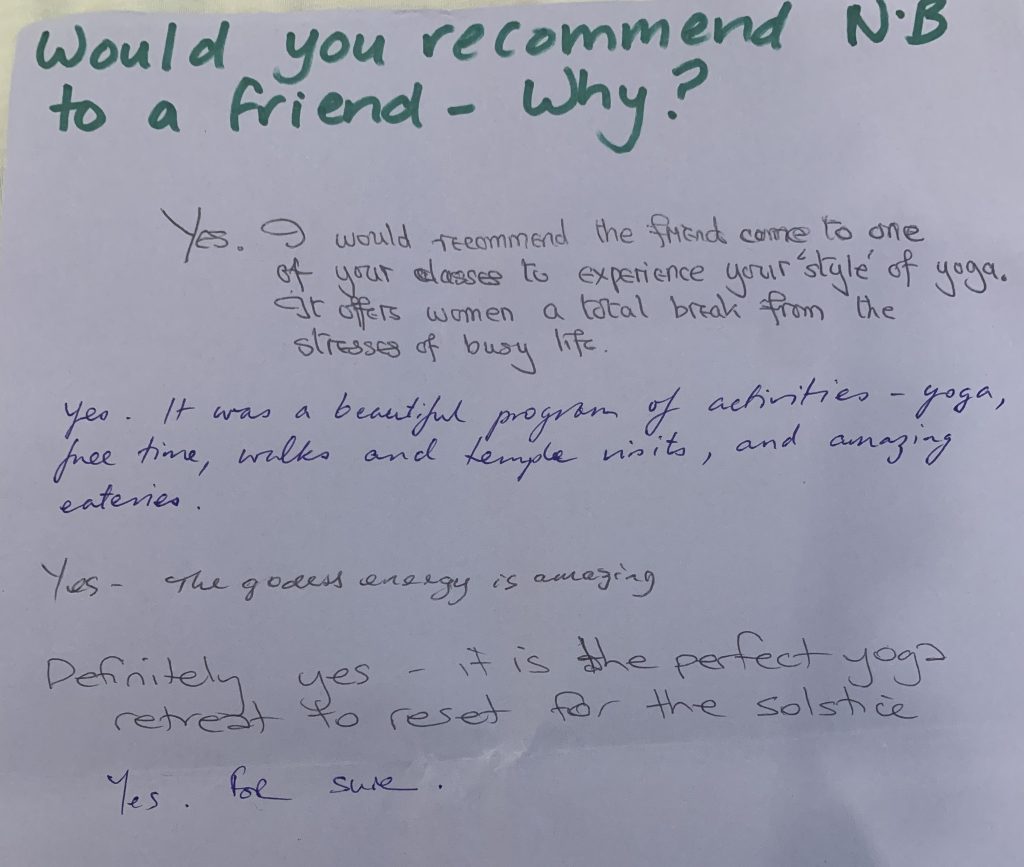 Would you recommend N.B
to a friend - Why?
Yes. I would recommend the friend come to one
of your classes to experience your 'style' of yoga.
It offers women a total break from the
stresses of busy life.
Yes. It was a beautiful program of activities - yoga,
free time, walks and temple visits, and amazing
eateries.
Yes - The godess energy is amazing
Definitely yes - it is the perfect yoga
retreat to reset for the solstice
Yes. For sure.